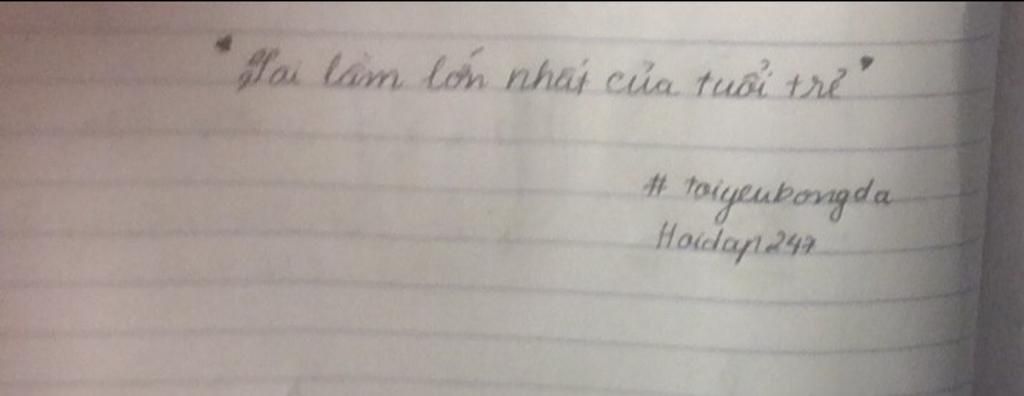 "Sai lầm lớn nhất của tuổi trẻ"
# toiyeubongda
Hoidap247